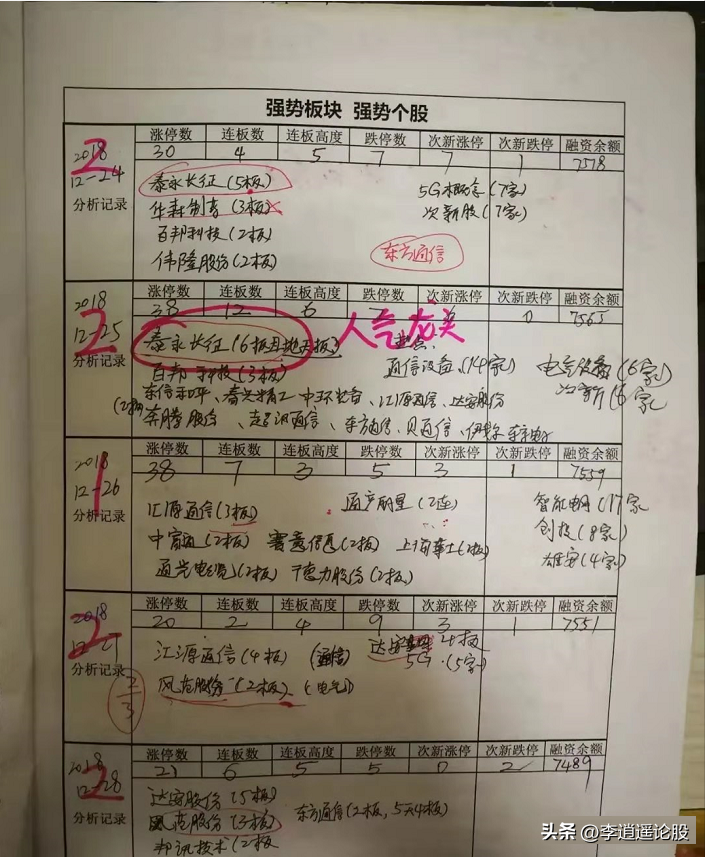 强势板块 强势个股
涨停数 连板数 连板高度 跌停数 次新涨停 次新跌停 融资余额
2018 30 4 5 7 7 1 7578
12-24
2
分析记录
泰永长征(5板) 5G概念(7家)
华森制药(3板) 次新股(7家)
百邦科技(2板)
伟隆股份(2板) 东方通信
涨停数 连板数 连板高度 跌停数 次新涨停 次新跌停 融资余额
2018 38 12 6 0 7565
12-25
2
分析记录
泰永长征(6板且地天板) 人气龙头
百邦科技(3板) 通信设备(14家) 电气设备(6家)
东信和平、春兴精工、中环装备、汇源通信、达安股份 次新(6家
(2板) 奔腾股份、超讯通信、东方通信、贝通信、伊戈尔
涨停数 连板数 连板高度 跌停数 次新涨停 次新跌停 融资余额
2018 38 7 3 5 3 1 7559
12-26
1
分析记录
汇源通信(3板) 通产丽星(2连) 智能电网(17家
中富通(2板) 赛意信息(2板) 上海莱士(2板) 创投(8家)
通光电缆(2板) 德力股份(2板) 雄安(4家)
涨停数 连板数 连板高度 跌停数 次新涨停 次新跌停 融资余额
2018 20 2 4 9 3 1 7551
2
分析记录
汇源通信(4板) (通信) 达安 4板
5G(5家)
风范股份(2板) (电气)
2/3
涨停数 连板数 连板高度 跌停数 次新涨停 次新跌停 融资余额
2018 21 6 5 5 0 2 7489
12-28
2
分析记录
达安股份(5板)
风范股份(3板) 东方通信(2板,5天4板)
邦讯技术(2板
头条 @李逍遥论股